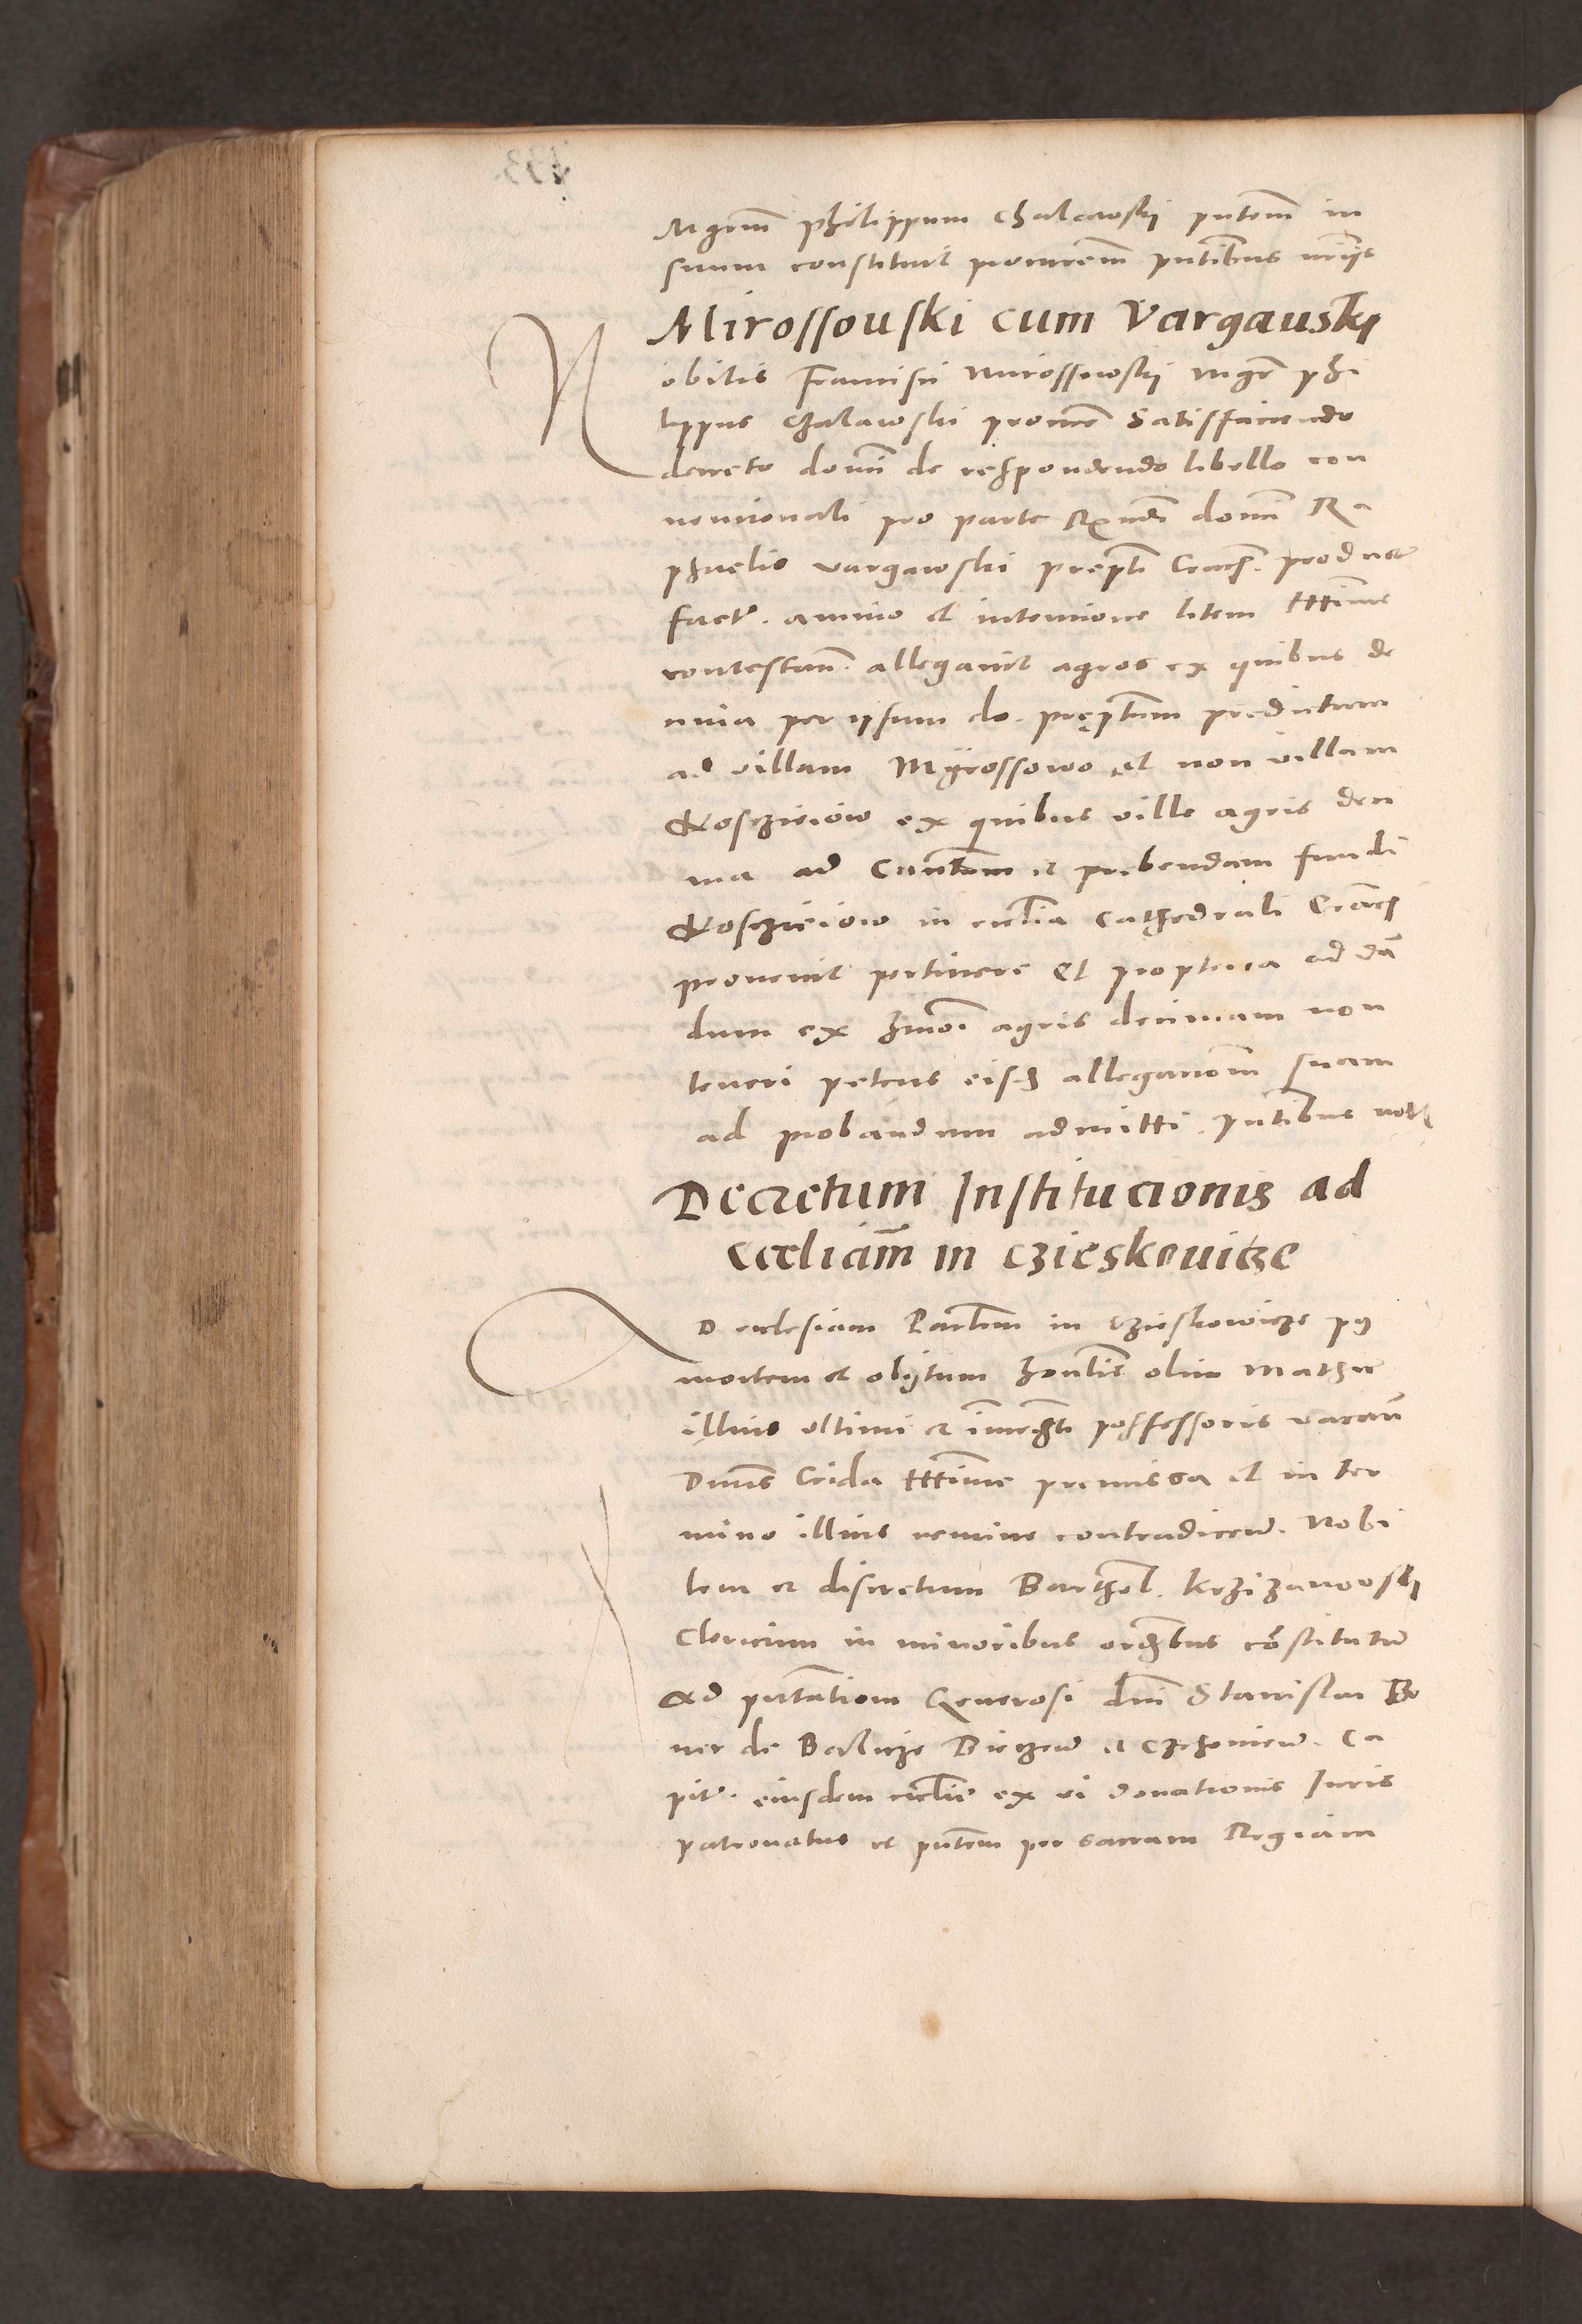 Mgrm philippum Chalcowski pntem in
suum constituit procurem pntibus
Mirossouski cum Vargauski
Nobilis Francisci Mirossowski Mgr phi
lippus Chalawski procur Satisfaciendo
decreto domi de respondendo libello con
uencionali pro parte Rndi domi Ra
phaelis vargawski prepti Crac. product
fact. animo et intencione litem lttime
contestan. allegauit agros ex quibus de
cima per ipsum do. preptum
ad villam Myrossowo et non villam
Kosczieiow ex quibus ville agris deci
ma ad Canтum et prebendam fundi
Kosczieiow in ecclia Cathedrali Crac
prouenit pertinere Et propterea ad dan
dum ex hmoi agris decimam non
teneri petens eisd allegacionem suam
ad probandum admitti. pntibus not
Decretum Institucionis ad
eccliam in Czieskouicze
AD ecclesiam Parlem in Czieskowicze per
mortem et obitum honblis olim Mathie
illius vltimi et immedti possessoris vacan
Dumts Crida lttime premissa et in ter
mino illius nemine contradicen. Nobi
lem et discretum Barthol. Krzizanowski
Clericum in minoribus ordbus constitutum
Ad pntationem Generosi dni Stanislai Bo
ner de Balicze Biecen et Czchouien. Ca
pit. eiusdem ecclie ex vi donationis Iuris
patronatus et pntem per sacram Regiam